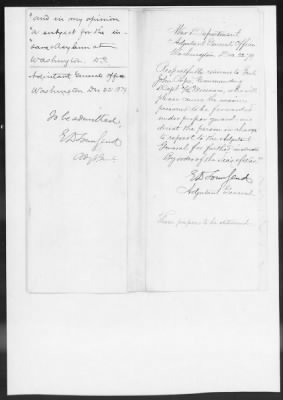 "and in my opinion
"a subject for the in-
"sane asylum at
Washington, D.C.
Adjutant General's Office
Washington Dec 22 1879
To be admitted,
E D Townsend
Adjt Genl
War Department
Adjutant General's Office
Washington Dec 22 '79
Respectfully returned to
John Commanding
Dept of the Missouri, who will
please cause the
prisoner to be forwarded
under proper guard, and
direct the person in charge
to report to the Adjutant
General for further
By order of the Sec'y of War
E D Townsend
Adjutant General
These papers to be returned